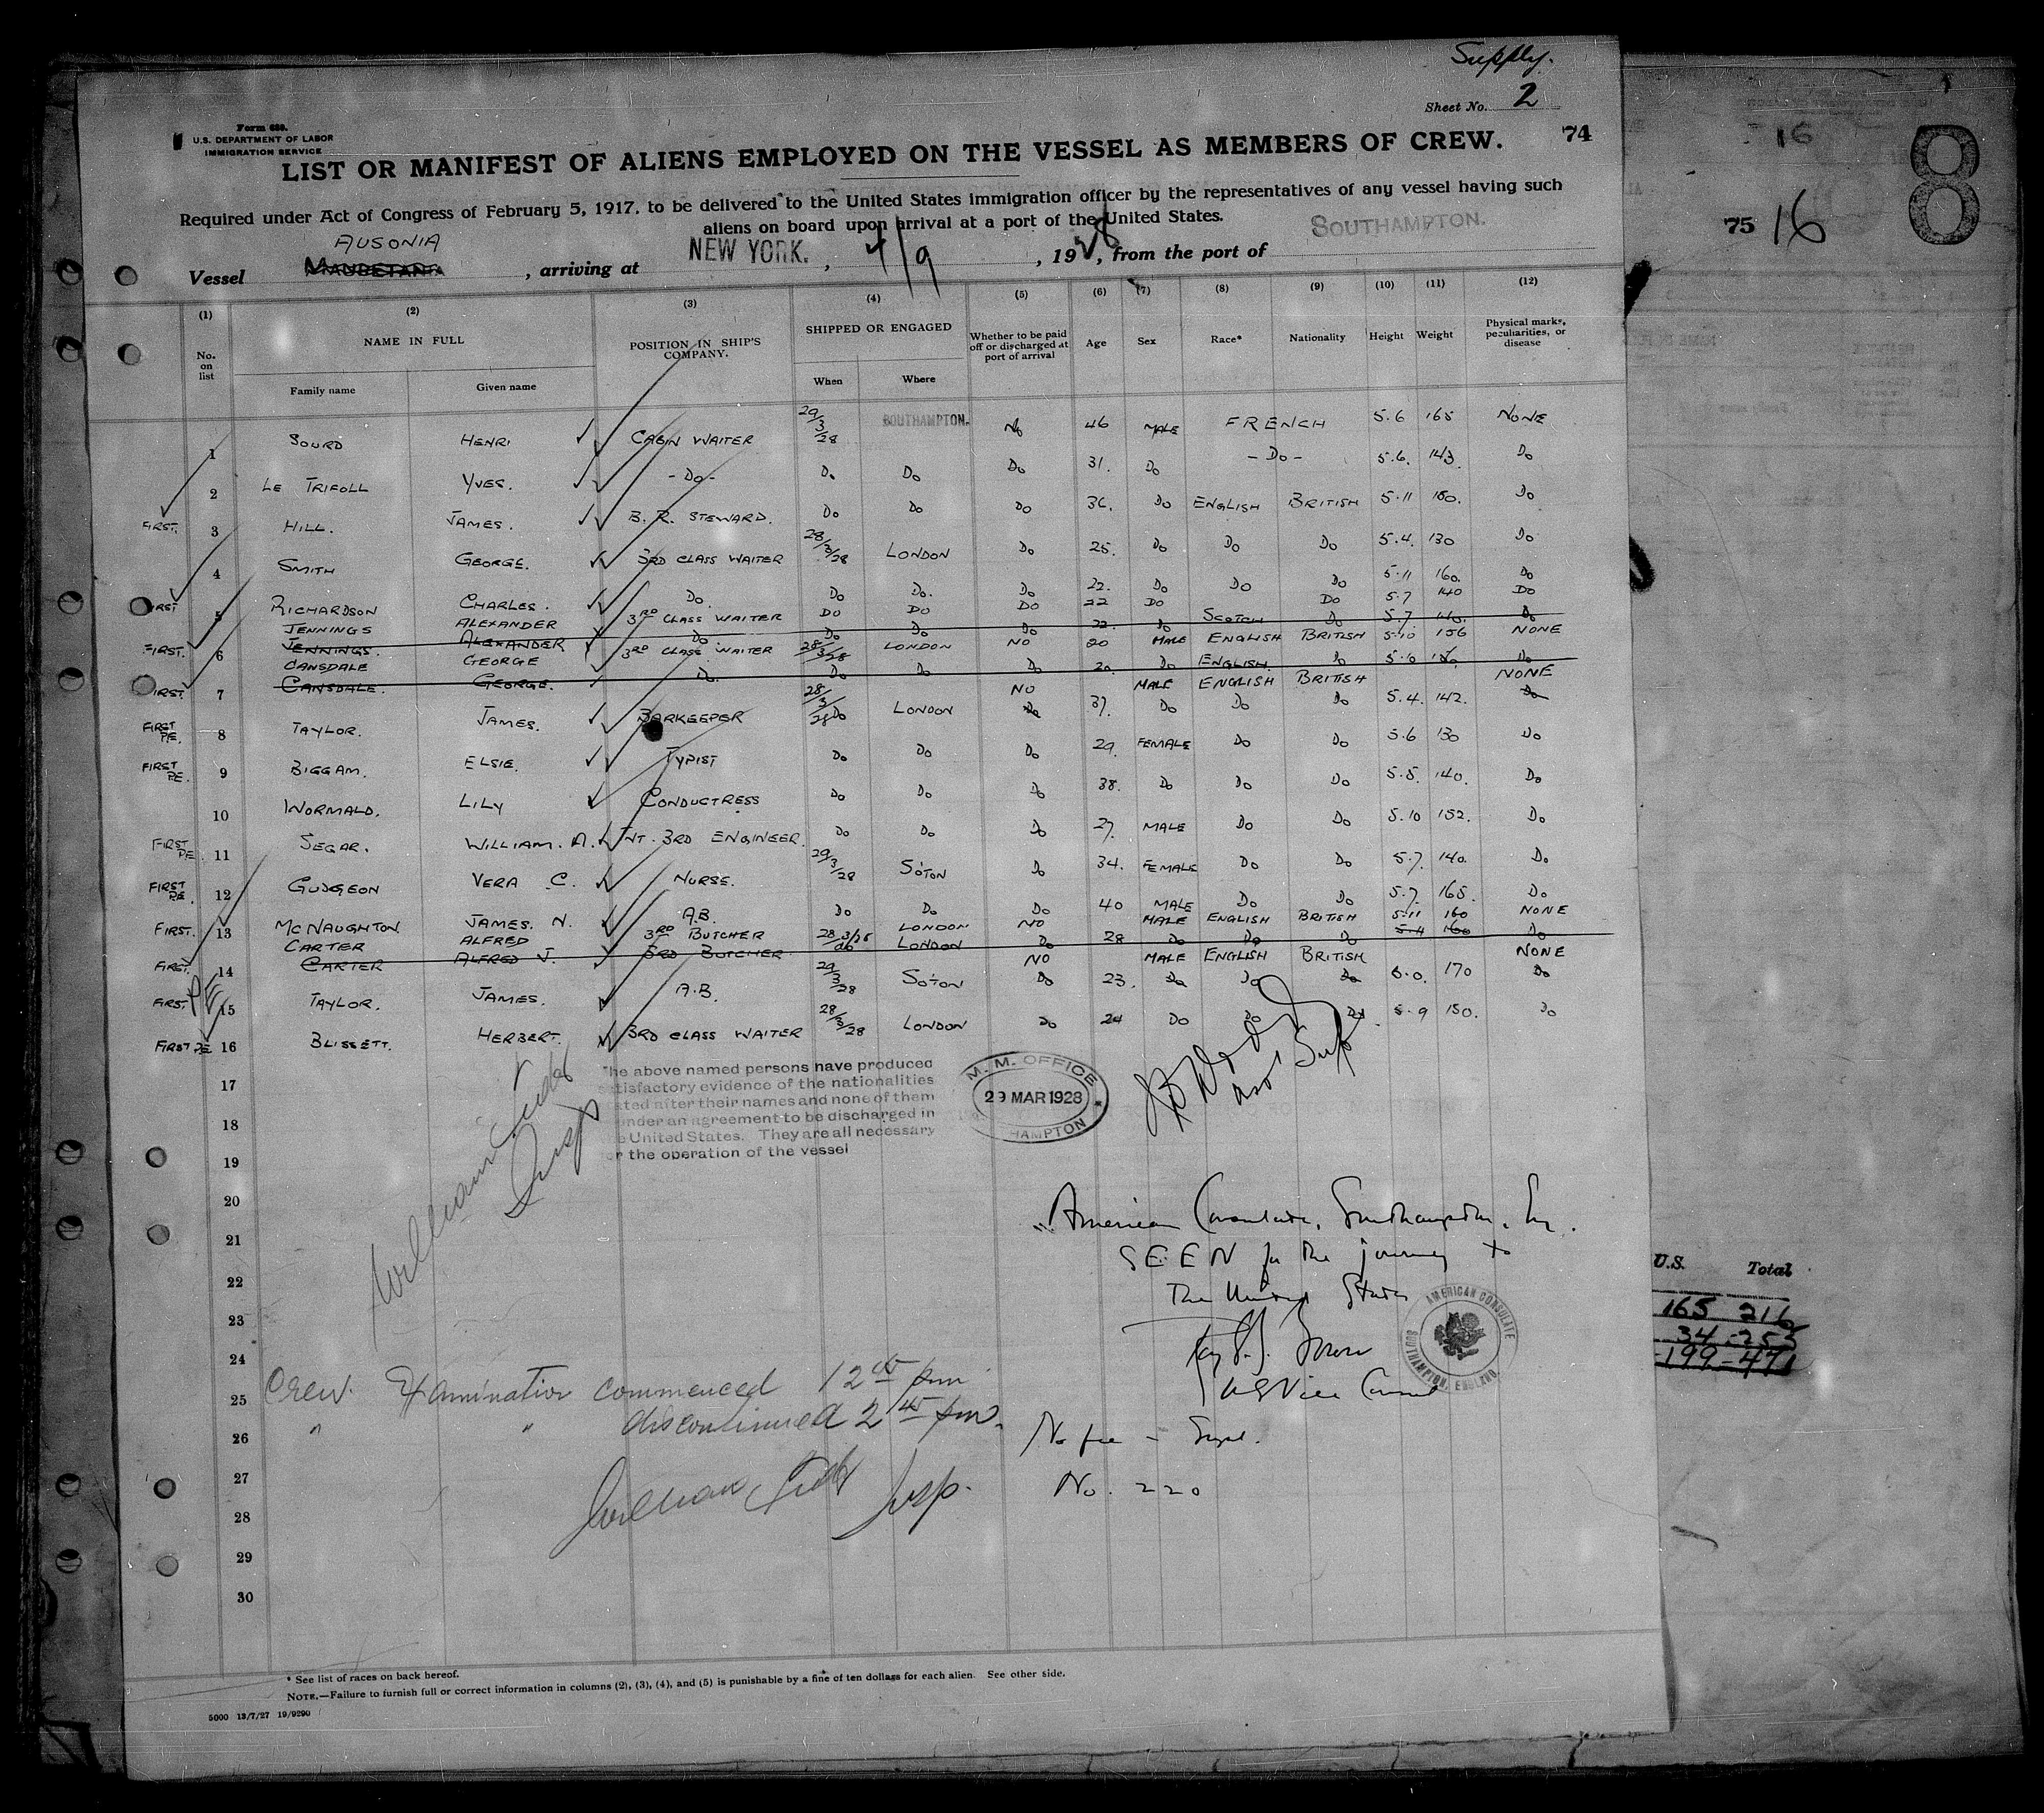 Supply.
Sheet No. 2
Form 689.
U.S. DEPARTMENT OF LABOR
IMMIGRATION SERVICE
74
LIST OR MANIFEST OF ALIENS EMPLOYED ON THE VESSEL AS MEMBERS OF CREW.
Required under Act of Congress of February 5, 1917, to be delivered to the United States immigration officer by the representatives of any vessel having such
aliens on board upon arrival at a port of the United States.
AUSONIA
Vessel MAURETANIA, arriving at NEW YORK. , 4/9 , 1928, from the port of SOUTHAMPTON.
(1) (2) (3) (4) (5) (6) (7) (8) (9) (10) (11) (12)
No. on list NAME IN FULL POSITION IN SHIP'S COMPANY. SHIPPED OR ENGAGED Whether to be paid off or discharged at port of arrival Age Sex Race* Nationality Height Weight Physical marks, peculiarities, or disease
Family name Given name When Where
1 SOURD HENRI CABIN WAITER 29/3/28 SOUTHAMPTON. No 46 MALE FRENCH 5.6 165 NONE
2 LE TRIFOLL YVES. -Do- Do Do Do 31. Do -Do- 5.6. 143. Do
FIRST. 3 HILL. JAMES. B.R. STEWARD. Do Do Do 36. Do ENGLISH BRITISH 5.11 180. Do
4 SMITH GEORGE. 3RD CLASS WAITER 28/3/28 LONDON Do 25. Do Do Do 5.4. 130 Do
FIRST 5 RICHARDSON CHARLES. Do Do Do. Do 22. Do Do Do 5.11 160. Do
JENNINGS ALEXANDER 3RD CLASS WAITER DO DO DO 22 DO SCOTCH DO 5.7 140 DO
FIRST. 6 JENNINGS. ALEXANDER Do. Do Do Do 22. Do Do 5.7. 140. Do
CANSDALE GEORGE 3RD CLASS WAITER 28/3/28 LONDON NO 20 MALE ENGLISH BRITISH 5.10 156 NONE
FIRST. 7 CANSDALE. GEORGE. Do. Do Do Do 20. Do ENGLISH. Do 5.10 Do
28/3/28 NO MALE ENGLISH BRITISH NONE
FIRST P.E. 8 TAYLOR. JAMES. BARKEEPER Do LONDON Do 37. Do Do Do 5.4. 142. Do
FIRST P.E. 9 BIGGAM. ELSIE. TYPIST Do Do Do 29. FEMALE Do Do 5.6 130 Do
10 WORMALD. LILY CONDUCTRESS Do Do Do 38. Do Do Do 5.5. 140. Do
FIRST P.E. 11 SEGAR. WILLIAM. A. INT. 3RD ENGINEER. Do Do Do 27. MALE Do Do 5.10 152. Do
FIRST P.E. 12 GUDGEON VERA C. NURSE. 29/3/28 SO'TON Do 34. FEMALE Do Do 5.7. 140. Do
FIRST. 13 MCNAUGHTON JAMES. N. A.B. Do Do Do 40 MALE Do Do 5.7. 165. Do
CARTER ALFRED 3RD BUTCHER 28/3/28 LONDON NO MALE ENGLISH BRITISH 5.11 160 NONE
FIRST. 14 CARTER ALFRED J. 3RD BUTCHER do LONDON Do 28 Do Do Do 5.11 160 Do
NO MALE ENGLISH BRITISH NONE
FIRST. P.E. 15 TAYLOR. JAMES. A.B. 29/3/28 SO'TON Do 23. Do Do Do 6.0. 170 Do
FIRST P.E 16 BLISSETT. HERBERT. 3RD CLASS WAITER 28/3/28 LONDON Do 24 Do Do Do 5.9 150. Do
17
18
19
20
21
22
23
24
25
26
27
28
29
30
he above named persons have produced
tisfactory evidence of the nationalities
ted after their names and none of them
nder an agreement to be discharged in
e United States. They are all necessary
r the operation of the vessel
M. M. OFFICE
29 MAR 1928
HAMPTON
Asst Supt
William
Insp
American Consulate, Southampton, Eng.
SEEN for the journey to
The United States
US Vice Consul
AMERICAN CONSULATE
SOUTHAMPTON, ENGLAND.
No fee
No. 220
Crew Examination commenced 12 45 pm
" " discontinued 2 45 pm.
William Insp.
* See list of races on back hereof.
NOTE.—Failure to furnish full or correct information in columns (2), (3), (4), and (5) is punishable by a fine of ten dollars for each alien. See other side.
5000 13/7/27 19/9290
16
75 16
8
U.S. Total
165 216
34 - 255
199 - 471